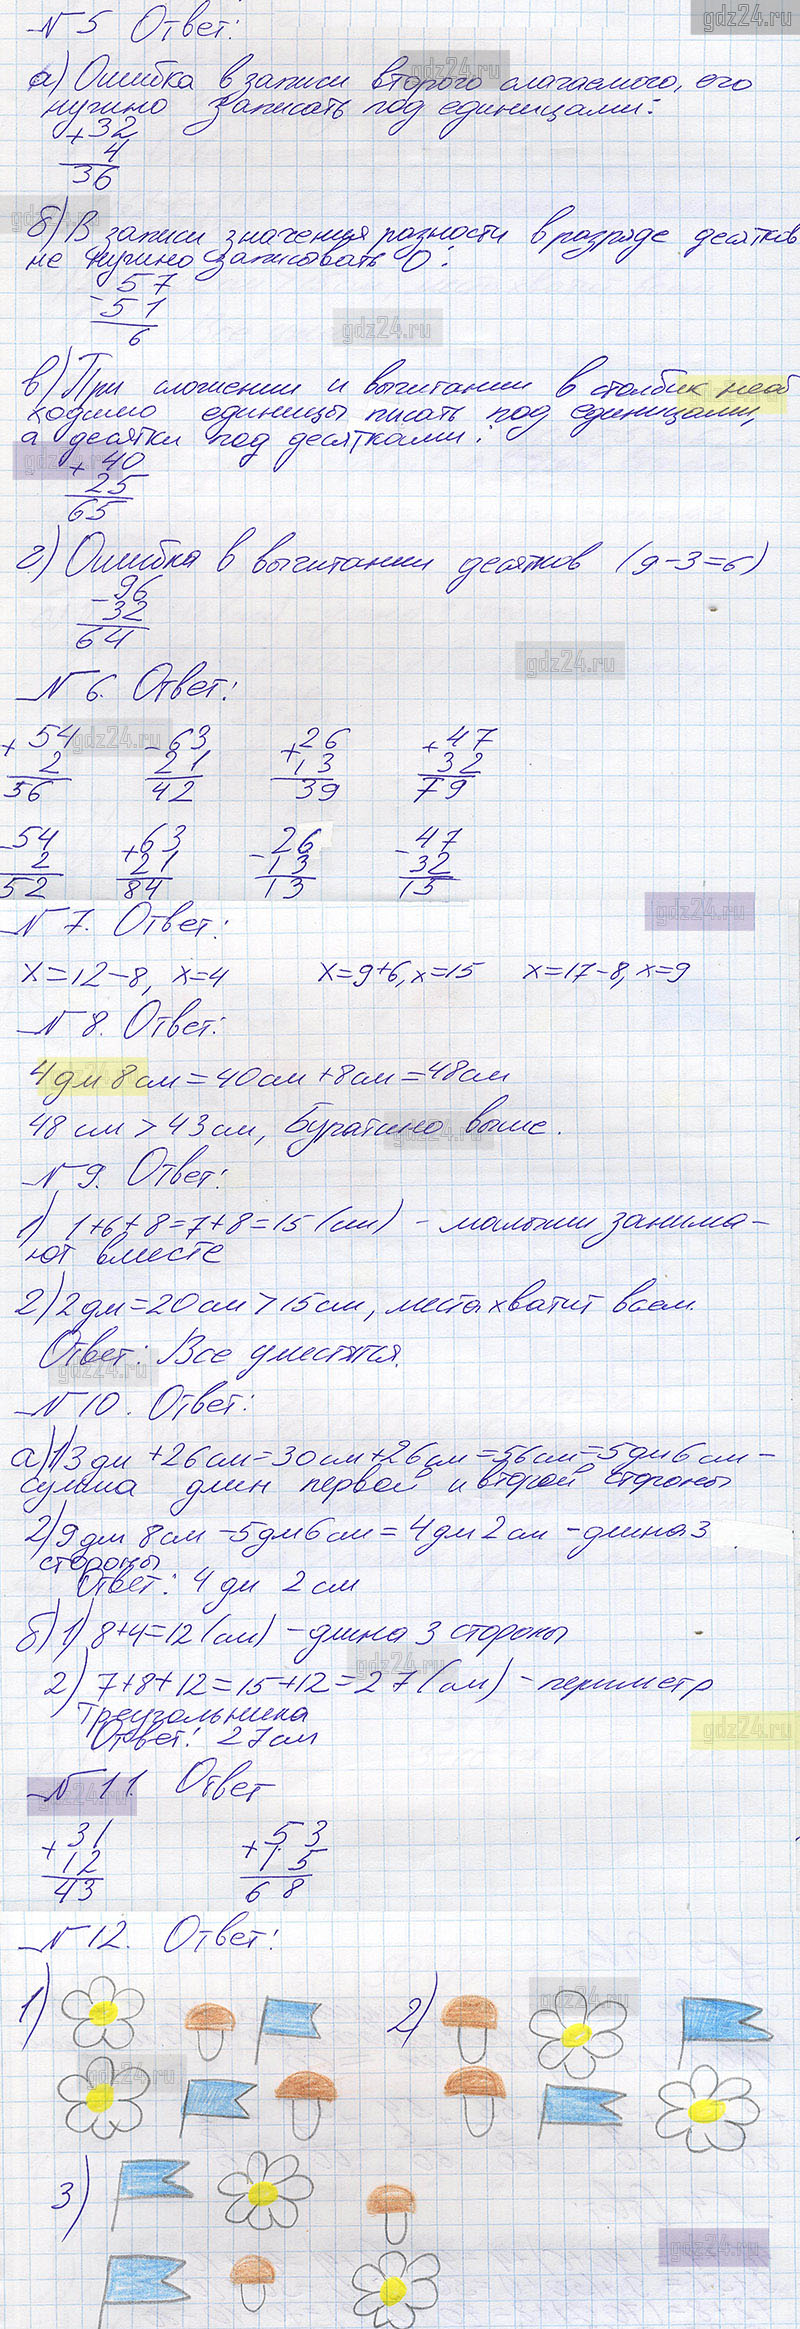 gdz24.ru
№ 5 Ответ:
а) Ошибка в записи второго слагаемого, его
нужно записать под единицами:
+ 32
4
36
б) В записи значения разности в разряде десятков
не нужно записывать 0:
57
- 51
6
gdz24.ru
в) При сложении и вычитании в столбик необ
ходимо единицы писать под единицами,
а десятки под десятками:
+ 40
25
65
г) Ошибка в вычитании десятков (9-3=6)
- 96
32
64
gdz24.ru
№ 6. Ответ:
gdz24.ru
+ 54 - 63 + 26 + 47
2 21 13 32
56 42 39 79
- 54 + 63 - 26 - 47
2 21 13 32
52 84 13 15
gdz24.ru
№ 7. Ответ:
x=12-8, x=4 x=9+6, x=15 x=17-8, x=9
№ 8. Ответ:
4дм 8см = 40см + 8см = 48см
48 см > 43 см, Буратино выше.
№ 9. Ответ:
1) 1+6+8=7+8=15 (см) - малыши занима-
ют вместе
2) 2 дм = 20 см > 15 см, места хватит всем
Ответ: Все уместятся.
gdz24.ru
№ 10. Ответ:
а) 1) 3 дм + 26 см = 30 см + 26 см = 56 см = 5 дм 6 см -
сумма длин первой и второй стороны
2) 9 дм 8 см - 5 дм 6 см = 4 дм 2 см - длина 3
стороны
Ответ: 4 дм 2 см
б) 1) 8+4=12 (см) - длина 3 стороны
gdz24.ru
2) 7+8+12=15+12=27 (см) - периметр
треугольника
Ответ: 27 см
gdz24.ru
№ 11. Ответ
+ 31 + 53
12 15
43 68
№ 12. Ответ:
1) 2)
gdz24.ru
gdz24.ru
3)
gdz24.ru